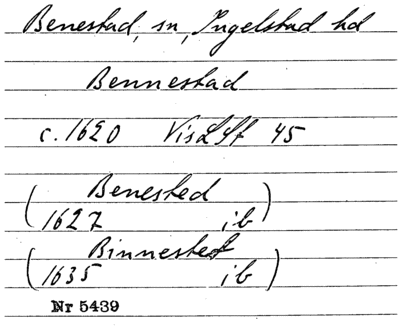 Benestad, sn, Ingelstad hd
Bennestad
c. 1620 VisLSt 45
( Benested
1627 ib )
( Binnested
1635 ib )
Nr 5439